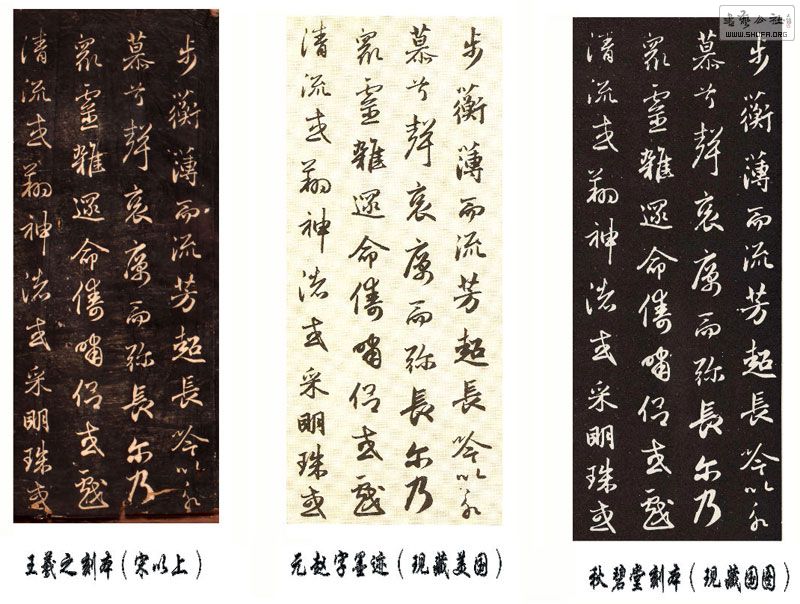 步蘅薄而流芳超長吟以永
慕兮聲哀厲而弥長尔乃
眾靈雜遝命儔嘯侶或戲
清流或翔神渚或采明珠或
王羲之刻本（宋以上）
步蘅薄而流芳超長吟以永
慕兮聲哀厲而弥長尔乃
眾靈雜遝命儔嘯侶或戲
清流或翔神渚或采明珠或
元赵字墨迹（現藏美国）
书艺公社
WWW.SHUFA.ORG
步蘅薄而流芳超長吟以永
慕兮聲哀厲而弥長尔乃
眾靈雜遝命儔嘯侶或戲
清流或翔神渚或采明珠或
秋碧堂刻本（現藏国图）